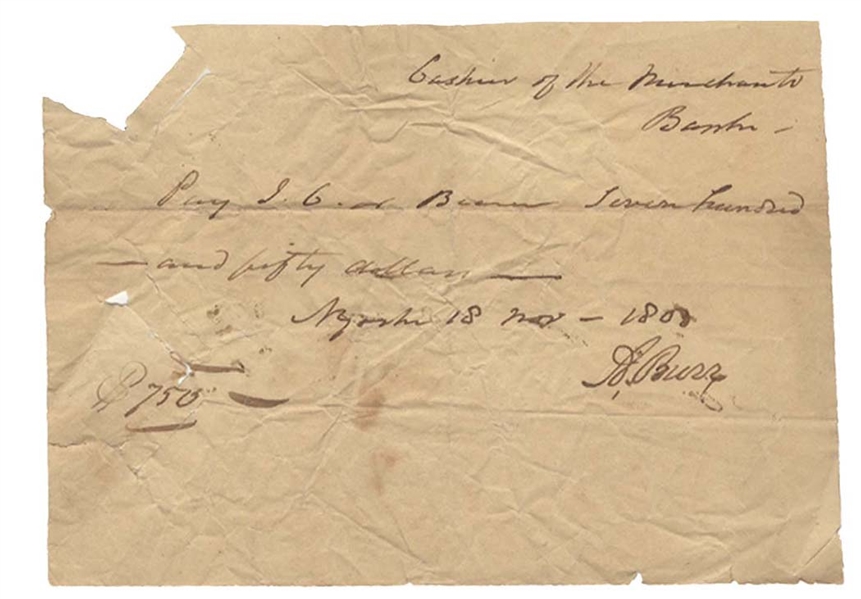 Cashier of the Merchants
Bank –
Pay I. C. or Bearer Seven hundred
— and fifty dollars —
Nyork 18 Nov – 180
A. Burr
750 —